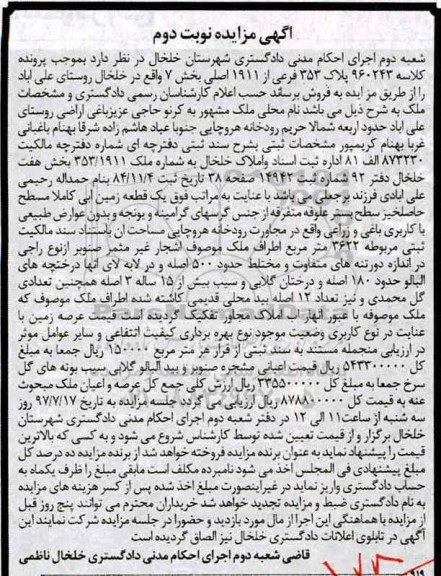 آگهی مزایده نوبت دوم
شعبه دوم اجرای احکام مدنی دادگستری شهرستان خلخال در نظر دارد بموجب پرونده
کلاسه ۹۶۰۲۴۳ پلاک ۳۵۳ فرعی از ۱۹۱۱ اصلی بخش ۷ واقع در خلخال روستای علی اباد
را از طریق مزایده به فروش برساند حسب اعلام کارشناسان رسمی دادگستری و مشخصات
ملک به شرح ذیل می باشد نام محلی ملک مشهور به کرنو حاجی عزیزباغی اراضی روستای
علی اباد حدود اربعه شمالا حریم رودخانه هروچایی جنوبا عباد هاشم زاده شرقا بهنام باغبانی
غربا بهنام کریمپور مشخصات ثبتی بشرح سند ثبتی دفترچه ای شماره دفترچه مالکیت
۸۷۳۲۳۰ الف ۸۱ اداره ثبت اسناد واملاک خلخال به شماره ملک ۳۵۳/۱۹۱۱ بخش هفت
خلخال دفتر ۹۲ شماره ثبت ۱۴۹۴۲ صفحه ۳۸ تاریخ ثبت ۸۴/۱۱/۴ بنام حمداله رحیمی
علی ابادی فرزند برجعلی می باشد با عنایت به مراتب فوق یک قطعه زمین ابی کاملا مسطح
حاصلخیز سطح بستر علوفه متفرقه از جنس گرسهای گرامینه و یونجه و بدون عوارض طبیعی
با کاربری باغی و زراعی واقع در مجاورت رودخانه هروچایی مساحت ان باستناد سند مالکیت
ثبتی مربوطه ۳۶۲۲ متر مربع اطراف ملک موصوف اشجار غیر مثمر صنوبر ازنوع راجی
در اندازه دورتنه های متفاوت و مختلط حدود ۵۰۰ اصله و در لابه لای آنها درختچه های
البالو حدود ۱۸۰ اصله و درختان گلابی و سیب بیش از ۱۵ ساله ۳ اصله همچنین تعدادی
گل محمدی و نیز تعداد ۱۲ اصله بید محلی قدیمی کاشته شده اطراف ملک موصوف که
ملک موصوفه با عبور انهار از املاک مجاور تفکیک گردیده است قیمت عرصه زمین با
عنایت در نوع کاربری وضعیت موجود نوع بهره برداری کیفیت انتفاعی و سایر عوامل موثر
در ارزیابی منجمله مستند به سند ثبتی از قرار هر متر مربع ۱۵۰۰۰۰ ریال جمعا به مبلغ
کل ۵۴۳۳۰۰۰۰۰ ریال قیمت اعیانی مشجره صنوبر و بید البالو گلابی سیب بوته های گل
سرخ جمعا به مبلغ کل ۳۳۵۵۰۰۰۰۰ ریال ارزش کلی جمع کل عرصه و اعیان ملک مبحوث
عنه به قیمت کل ۸۷۸۸۰۰۰۰۰ ریال ارزیابی می گردد جلسه مزایده به تاریخ ۹۷/۷/۱۷ روز
سه شنبه از ساعت۱۱ الی ۱۲ در دفتر شعبه دوم اجرای احکام مدنی دادگستری شهرستان
خلخال برگزار و از قیمت تعیین شده توسط کارشناس شروع می شود و به کسی که بالاترین
قیمت را پیشنهاد نماید به عنوان برنده مزایده فروخته خواهد شد از برنده مزایده ده درصد کل
مبلغ پیشنهادی فی المجلس اخذ می شود نامبرده مکلف است مابقی مبلغ را ظرف یکماه به
حساب دادگستری واریز نماید در غیراینصورت مبلغ اخذ شده پس از کسر هزینه های مزایده
به نام دادگستری ضبط و مزایده تجدید خواهد شد خریداران محترم می توانند پنج روز قبل
از مزایده با هماهنگی این اجرا از مال مورد بازدید و حضورا در جلسه مزایده شرکت نمایند این
آگهی در تابلوی اعلانات دادگستری خلخال نیز الصاق گردیده است
قاضی شعبه دوم اجرای احکام مدنی دادگستری خلخال ناظمی